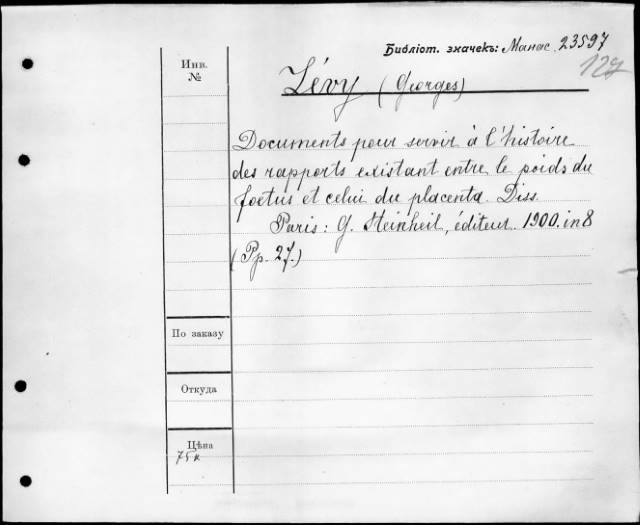 Библіот. значекъ: Манас. 23597
127
Инв.
№
Lévy (Georges)
Documents pour servir à l'histoire
des rapports existant entre le poids du
foetus et celui du placenta. Diss.
Paris: G. Steinheil, éditeur. 1900. in 8
(Pp. 27.)
По заказу
Откуда
Цѣна
75 к